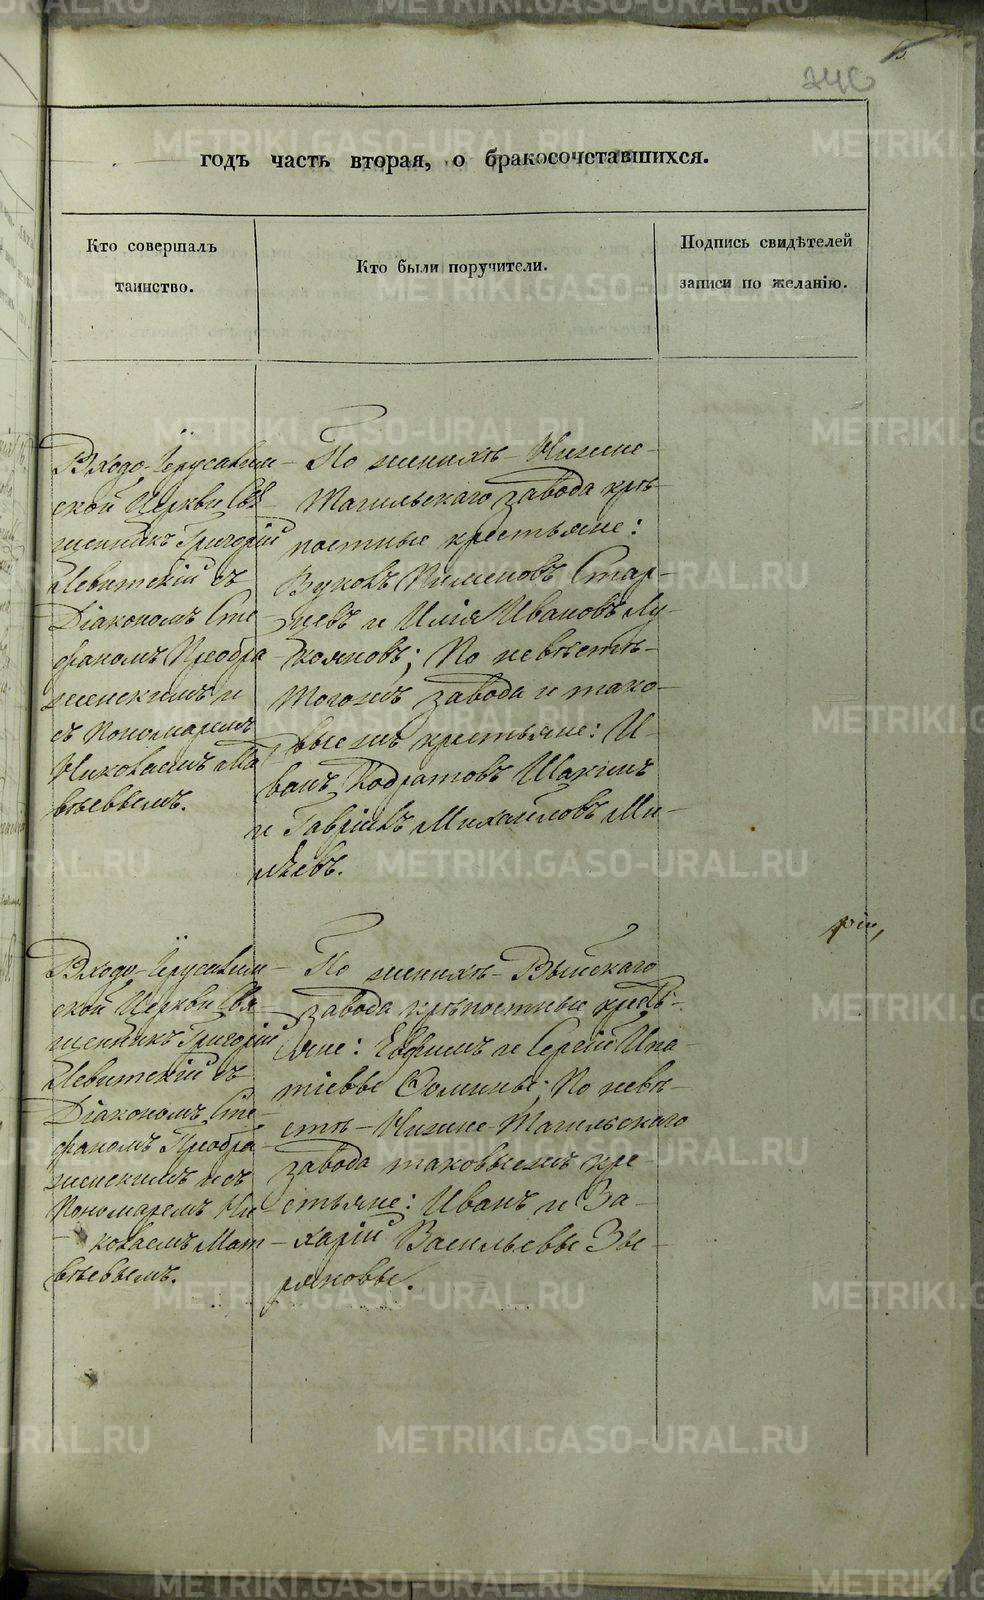 246
годъ часть вторая, о бракосочетавшихся.
Кто совершалъ
таинство.
Кто были поручители.
Подпись свидѣтелей
записи по желанію.
Входо-Іерусалим-
ской Церкви Свя
щенникъ Григорій
Левитскій съ
Діакономъ Сте
фаномъ Преобра
женскимъ и
съ Пономаремъ
Николаемъ Ма
твеевымъ.
По женихѣ Нижне-
Тагильскаго завода крѣ
постные крестьяне:
Вуколъ Пименовъ Стар-
цевъ и Илія Ивановъ Лу-
кояновъ; По невѣстѣ-
Тогожъ завода и тако-
выежъ крестьяне: И-
ванъ Кодратовъ Шахинъ
и Гавріилъ Михайловъ Ми-
лѣевъ.
Входо-Іерусалим-
ской Церкви Свя
щенникъ Григорій
Левитскій съ
Діакономъ Сте-
фаномъ Преобра
женскимъ и съ
Пономаремъ Ни
колаемъ Мат-
вѣевымъ.
По женихѣ-Выйскаго
завода крѣпостные кресть-
яне: Евфимъ и Сергій Ипа-
тіевы Фомины; По невѣ-
стѣ-Нижне-Тагильскаго
завода таковыежъ кре-
стьяне: Иванъ и За-
харій Васильевы Зы-
ряновы.
METRIKI.GASO-URAL.RU